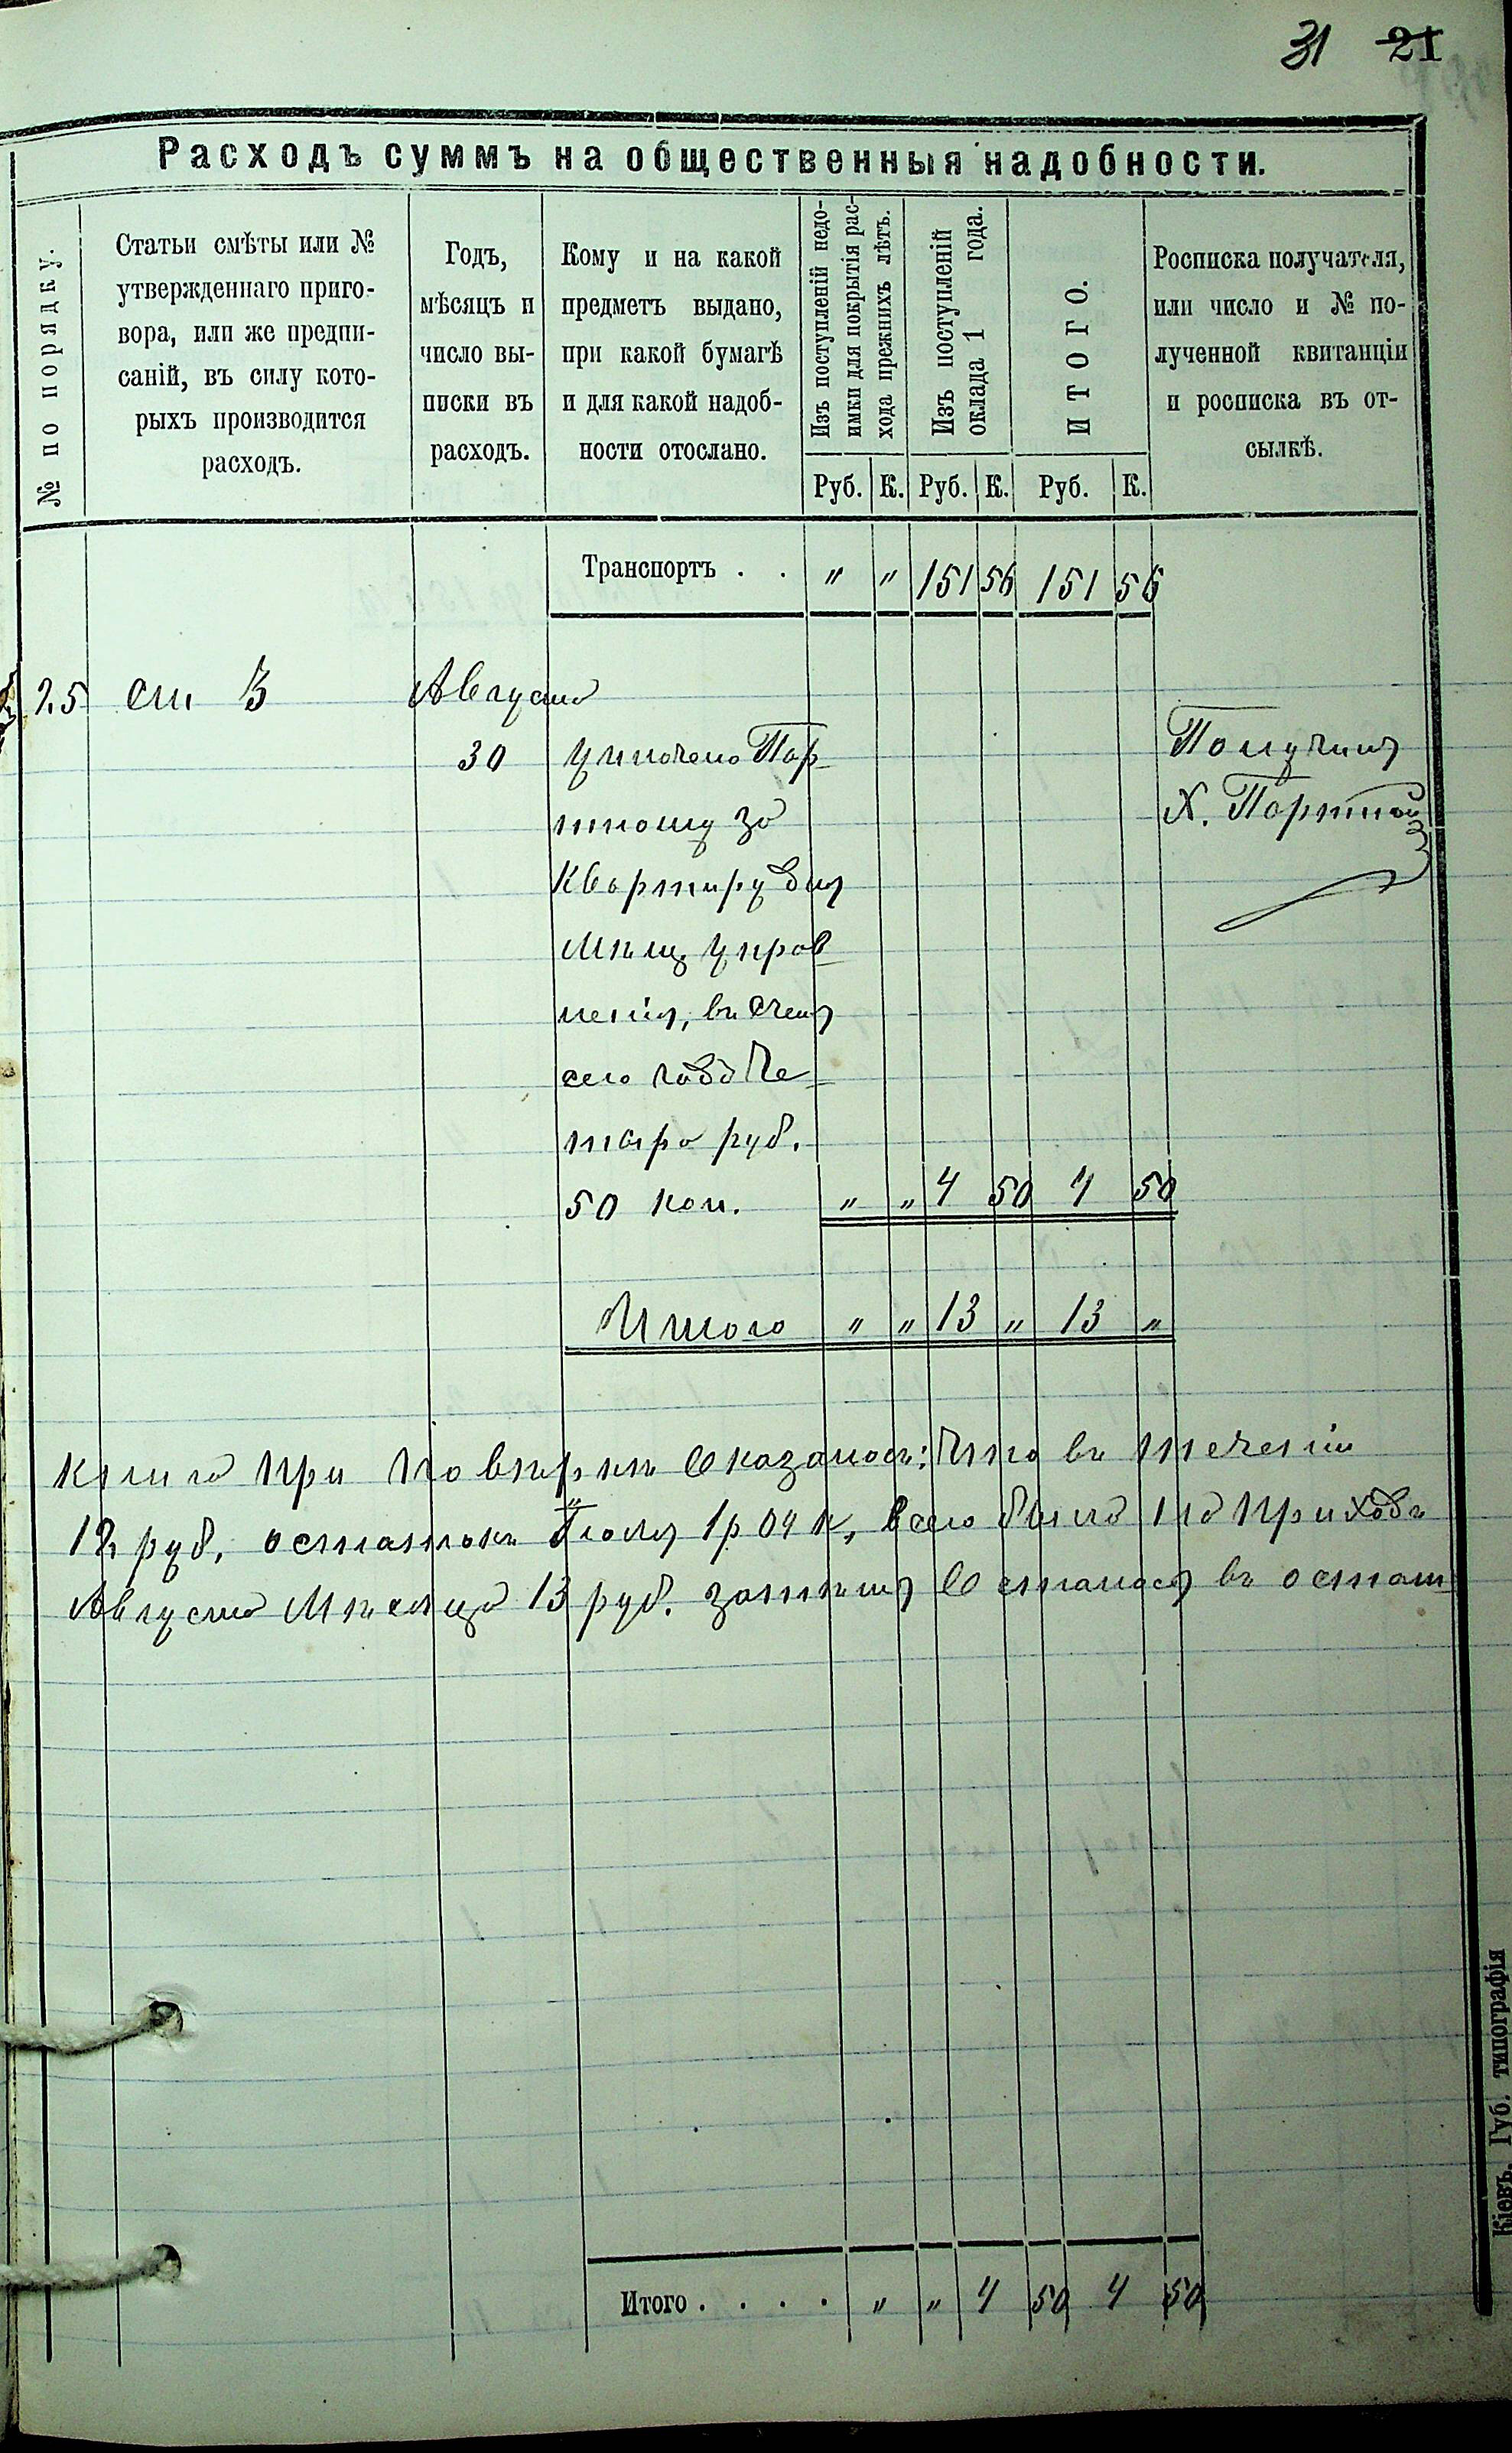 31 21
Расходъ суммъ на общественныя надобности.
№ по порядку.
Статьи смѣты или №
утвержденнаго приго-
вора, или же предпи-
саній, въ силу кото-
рыхъ производится
расходъ.
Годъ,
мѣсяцъ и
число вы-
писки въ
расходъ.
Кому и на какой
предметъ выдано,
при какой бумагѣ
и для какой надоб-
ности отослано.
Изъ поступленій недо-
имки для покрытія рас-
хода прежнихъ лѣтъ.
Изъ поступленій
оклада 1 года.
ИТОГО.
Росписка получателя,
или число и № по-
лученной квитанціи
и росписка въ от-
сылкѣ.
Руб. К. Руб. К. Руб. К.
Транспортъ . . " " 151 56 151 56
25 ст. 3 Августа
30 Уплочено Пор-
тному за
квартиру для
Мѣщ. Управ-
ленія, въ счетъ
сего года Че-
тыре руб.
50 коп. " " 4 50 4 50
Получилъ
Х. Портной
Итого " " 13 " 13 "
Книга при повѣркѣ оказалось: Что въ теченіи
12 руб, остатокъ Іюля 1 р 04 к, всего было на приходѣ
Августа Мѣсяца 13 руб. затѣмъ осталось въ остат
Итого . . . . " " 4 50 4 50
Кіевъ. Губ. типографія